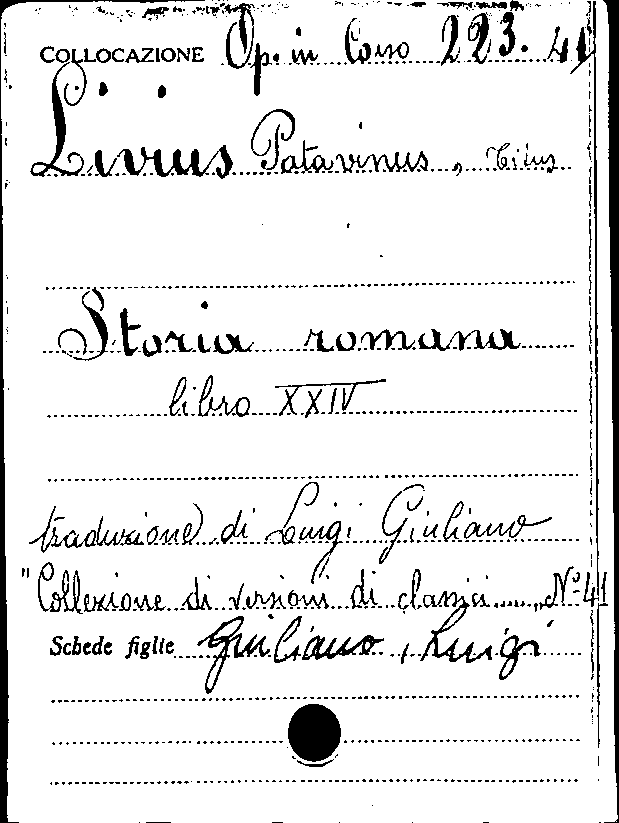 COLLOCAZIONE Op. in Corso 223. 41
Livius Patavinus, Titus
Storia romana
libro XXIV
traduzione di Luigi Giuliano
"Collezione di versioni di classici......„ N° 41
Schede figlie Giuliano, Luigi